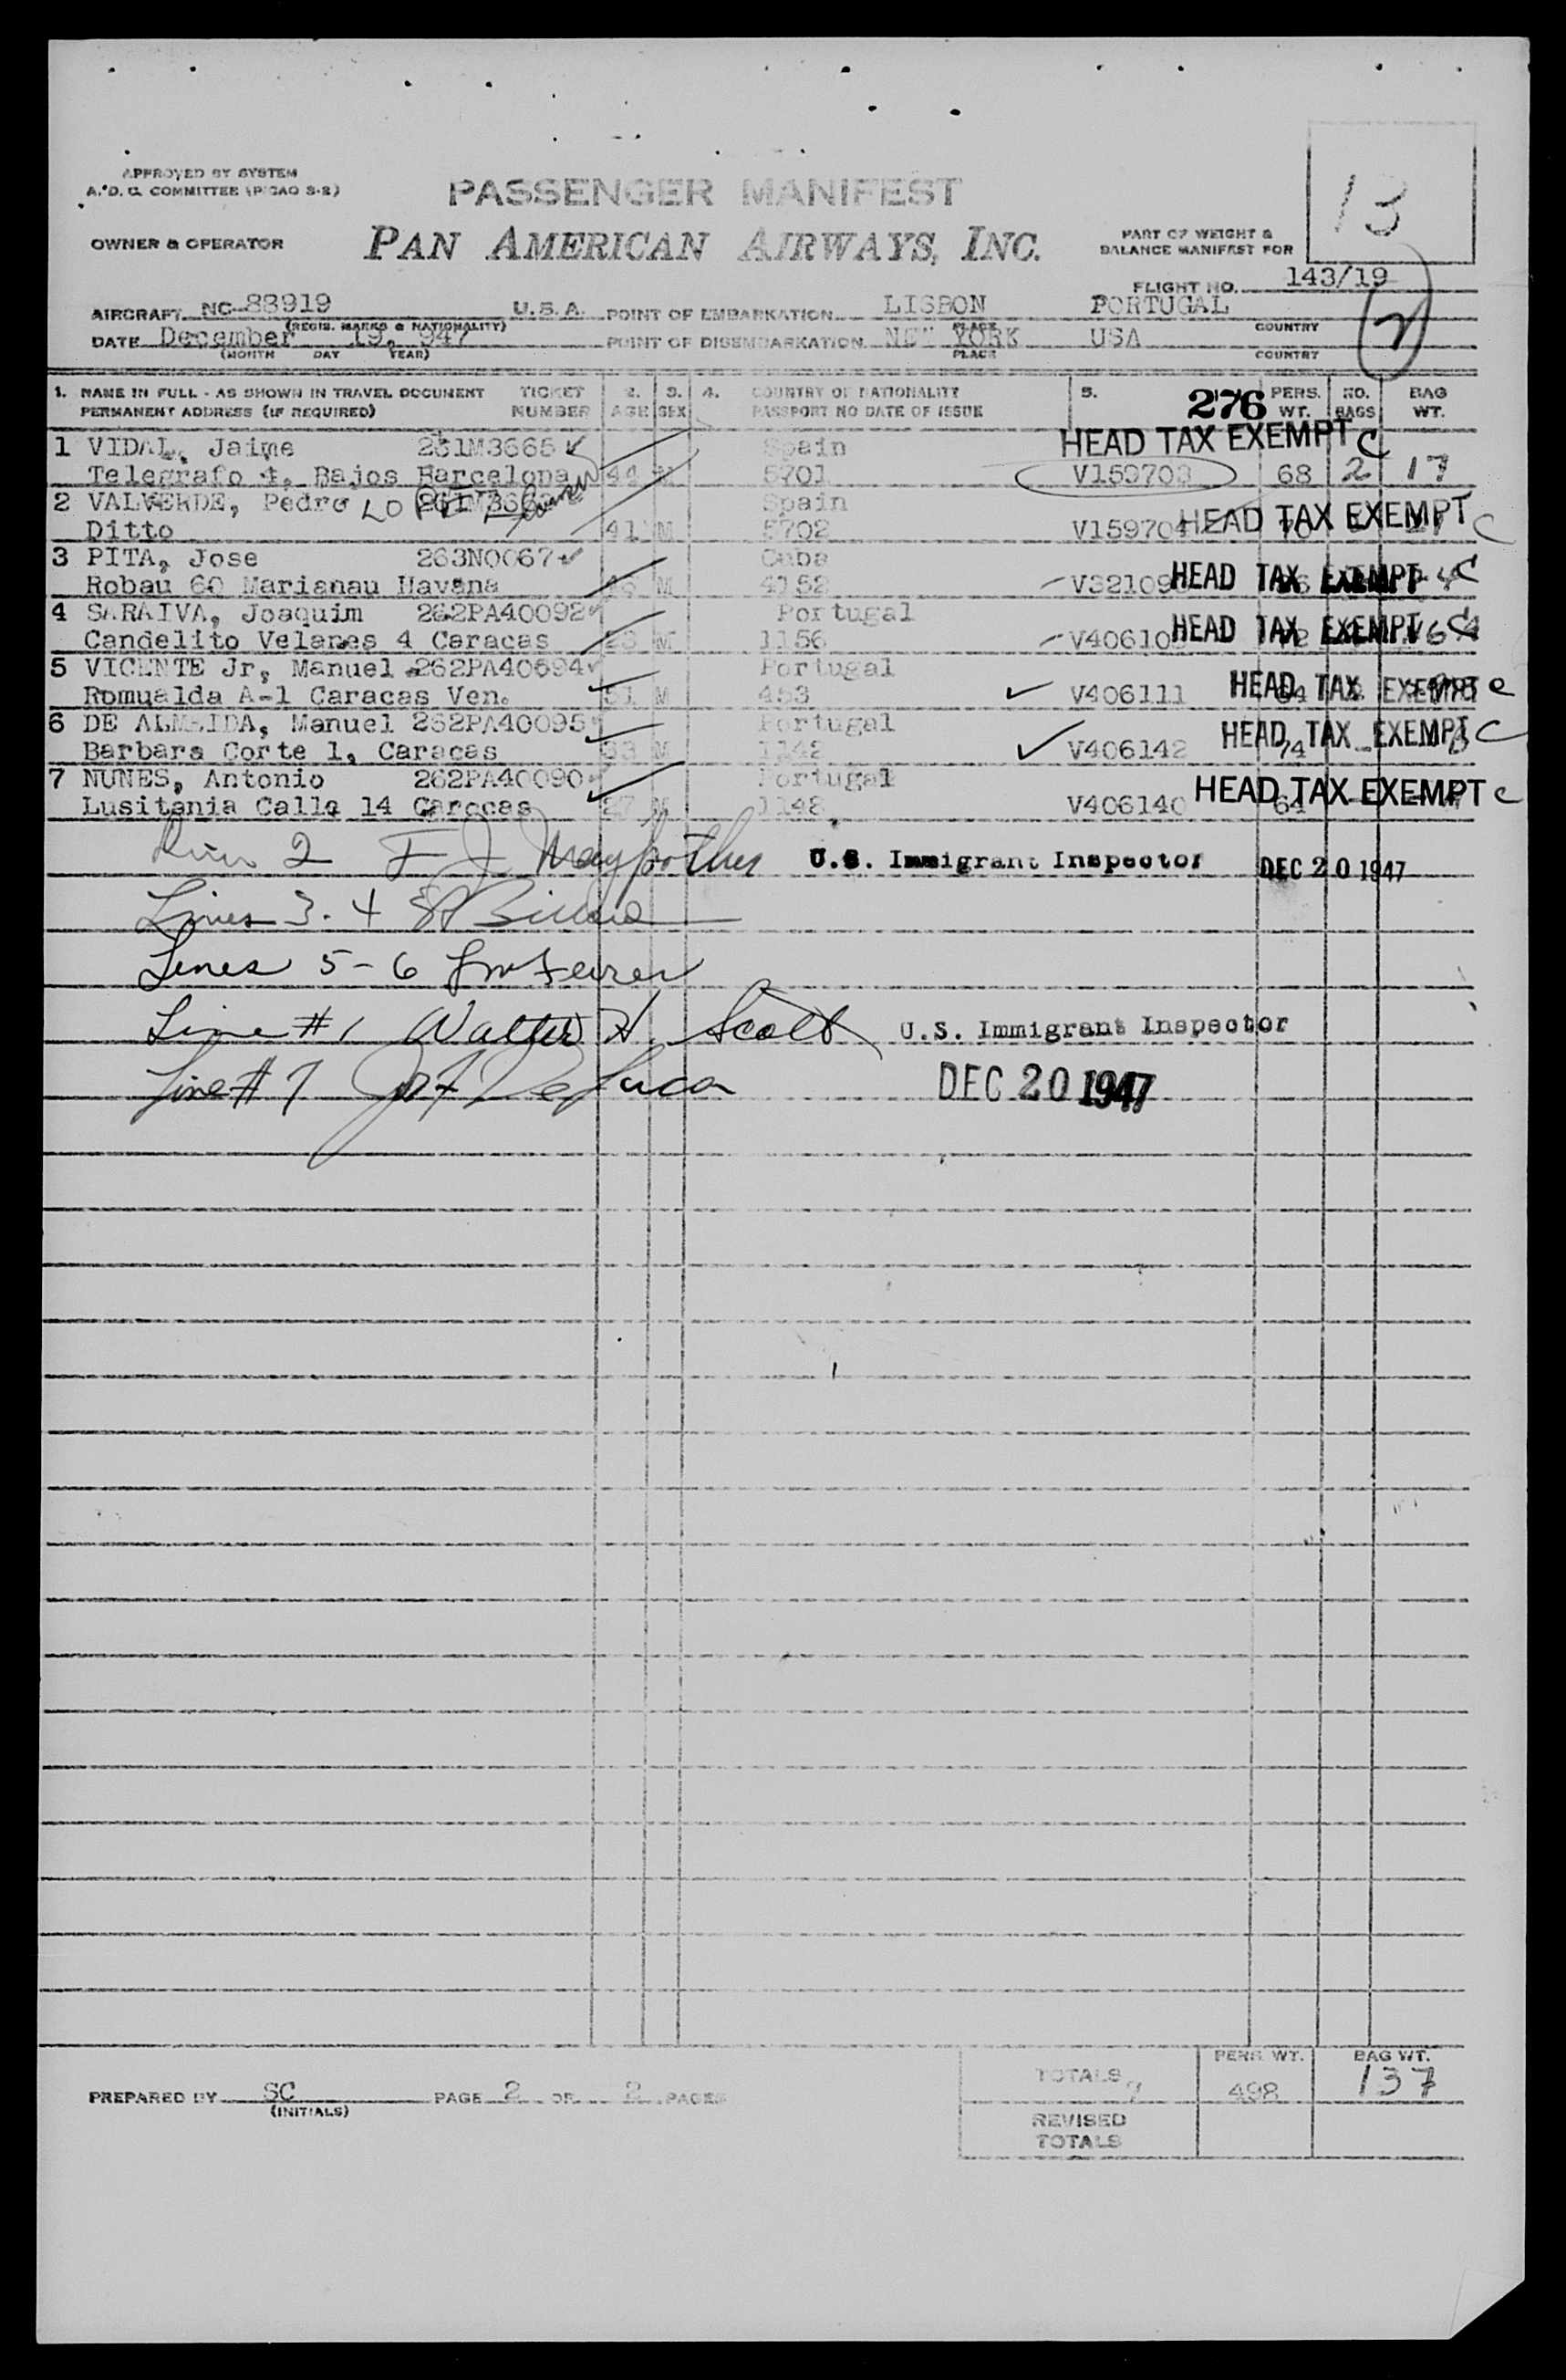 APPROVED BY SYSTEM
A.D.C. COMMITTEE (PICAO S-2)
PASSENGER MANIFEST
13
OWNER & OPERATOR
PAN AMERICAN AIRWAYS, INC.
PART OF WEIGHT &
BALANCE MANIFEST FOR
FLIGHT NO. 143/19
AIRCRAFT NC-88919 U.S.A. POINT OF EMBARKATION LISBON PORTUGAL
(REGIS. MARKS & NATIONALITY) PLACE COUNTRY
DATE December 19, 947 POINT OF DISEMBARKATION NEW YORK USA
(MONTH DAY YEAR) PLACE COUNTRY
1. NAME IN FULL - AS SHOWN IN TRAVEL DOCUMENT TICKET 2. 3. 4. COUNTRY OF NATIONALITY 5. 276 PERS. NO. BAG
PERMANENT ADDRESS (IF REQUIRED) NUMBER AGE SEX PASSPORT NO DATE OF ISSUE WT. BAGS WT.
1 VIDAL, Jaime 261M3665 Spain HEAD TAX EXEMPT C
Telegrafo 4, Bajos Barcelona 44 M 5701 V159703 68 2 17
2 VALVERDE, Pedro Spain HEAD TAX EXEMPT C
Ditto 41 M 5702 V159704
3 PITA, Jose 263N0067 Cuba
Robau 60 Marianau Havana M 4152 HEAD TAX EXEMPT C
4 SARAIVA, Joaquim 262PA40092 Portugal
Candelito Velanes 4 Caracas M 1156 HEAD TAX EXEMPT
5 VICENTE Jr, Manuel 262PA40694 Portugal
Romualda A-1 Caracas Ven. 51 M 453 V406111 HEAD TAX EXEMPT C
6 DE ALMEIDA, Manuel 262PA40095 Portugal
Barbara Corte 1, Caracas M 1142 V406142 74 HEAD TAX EXEMPT C
7 NUNES, Antonio 262PA40090 Portugal
Lusitania Calle 14 Caracas 27 M 1148 V406140 64 HEAD TAX EXEMPT C
2 F J U.S. Immigrant Inspector DEC 20 1947
Lines 3. 4
Lines 5-6
Line #1 Walter H. Scott U.S. Immigrant Inspector
Line #7 DeLuca DEC 20 1947
TOTALS 7 PERS. WT. 498 BAG WT. 137
PREPARED BY SC PAGE 2 OF 2 PAGES
(INITIALS)
REVISED
TOTALS